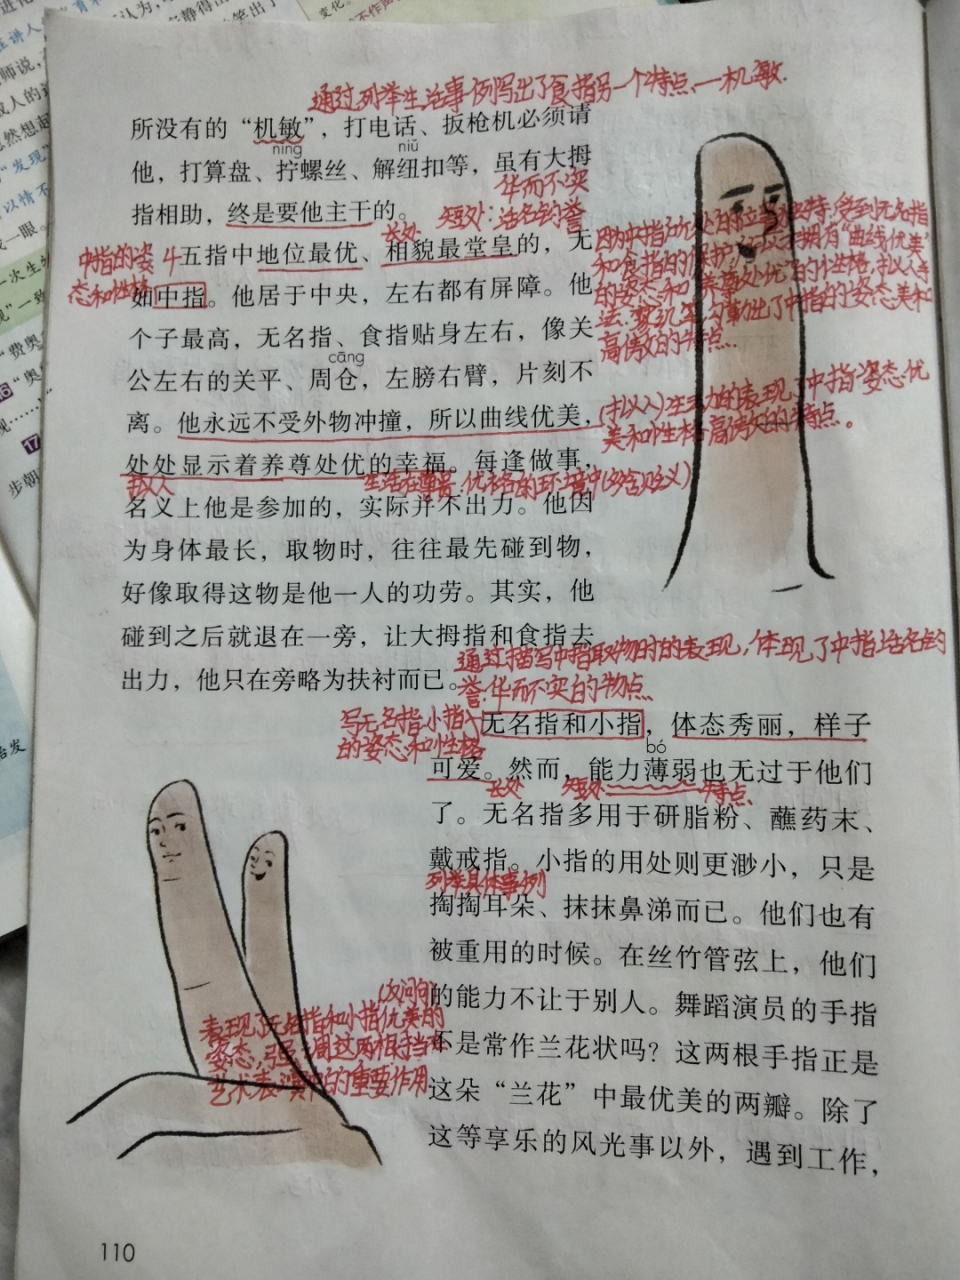 通过列举生活事例写出了食指另一个特点——机敏.
所没有的“机敏”，打电话、扳枪机必须请
nǐng
niǔ
他，打算盘、拧螺丝、解纽扣等，虽有大拇
华而不实
指相助，终是要他主干的。
长处
短处：沽名钓誉
中指的姿
态和性格
五指中地位最优、相貌最堂皇的，无
如中指。他居于中央，左右都有屏障。他
个子最高，无名指、食指贴身左右，像关
cāng
公左右的关平、周仓，左膀右臂，片刻不
离。他永远不受外物冲撞，所以曲线优美，
处处显示着养尊处优的幸福。每逢做事，
拟人
生活在尊贵、优裕的环境中(多含贬义)
因为中指
受到无名指
和食指的保护
拥有“曲线优美”
的姿态和“养尊处优”的性格,拟人手
法.
出了中指的姿态美和
高傲的特点.
(拟人)生动的表现了中指姿态优
美和性格高傲的特点。
名义上他是参加的，实际并不出力。他因
为身体最长，取物时，往往最先碰到物，
好像取得这物是他一人的功劳。其实，他
碰到之后就退在一旁，让大拇指和食指去
出力，他只在旁略为扶衬而已。
通过描写中指取物时的表现,体现了中指沽名钓
誉.华而不实的特点
写无名指小指
的姿态和性格
无名指和小指，体态秀丽，样子
bó
可爱。然而，能力薄弱也无过于他们
长处
短处
特点
了。无名指多用于研脂粉、蘸药末、
戴戒指。小指的用处则更渺小，只是
列举具体事例
掏掏耳朵、抹抹鼻涕而已。他们也有
被重用的时候。在丝竹管弦上，他们
(反问句)
的能力不让于别人。舞蹈演员的手指
不是常作兰花状吗？这两根手指正是
这朵“兰花”中最优美的两瓣。除了
这等享乐的风光事以外，遇到工作，
表现了无名指和小指优美的
姿态,强调这两根手指在
艺术表演中的重要作用
110